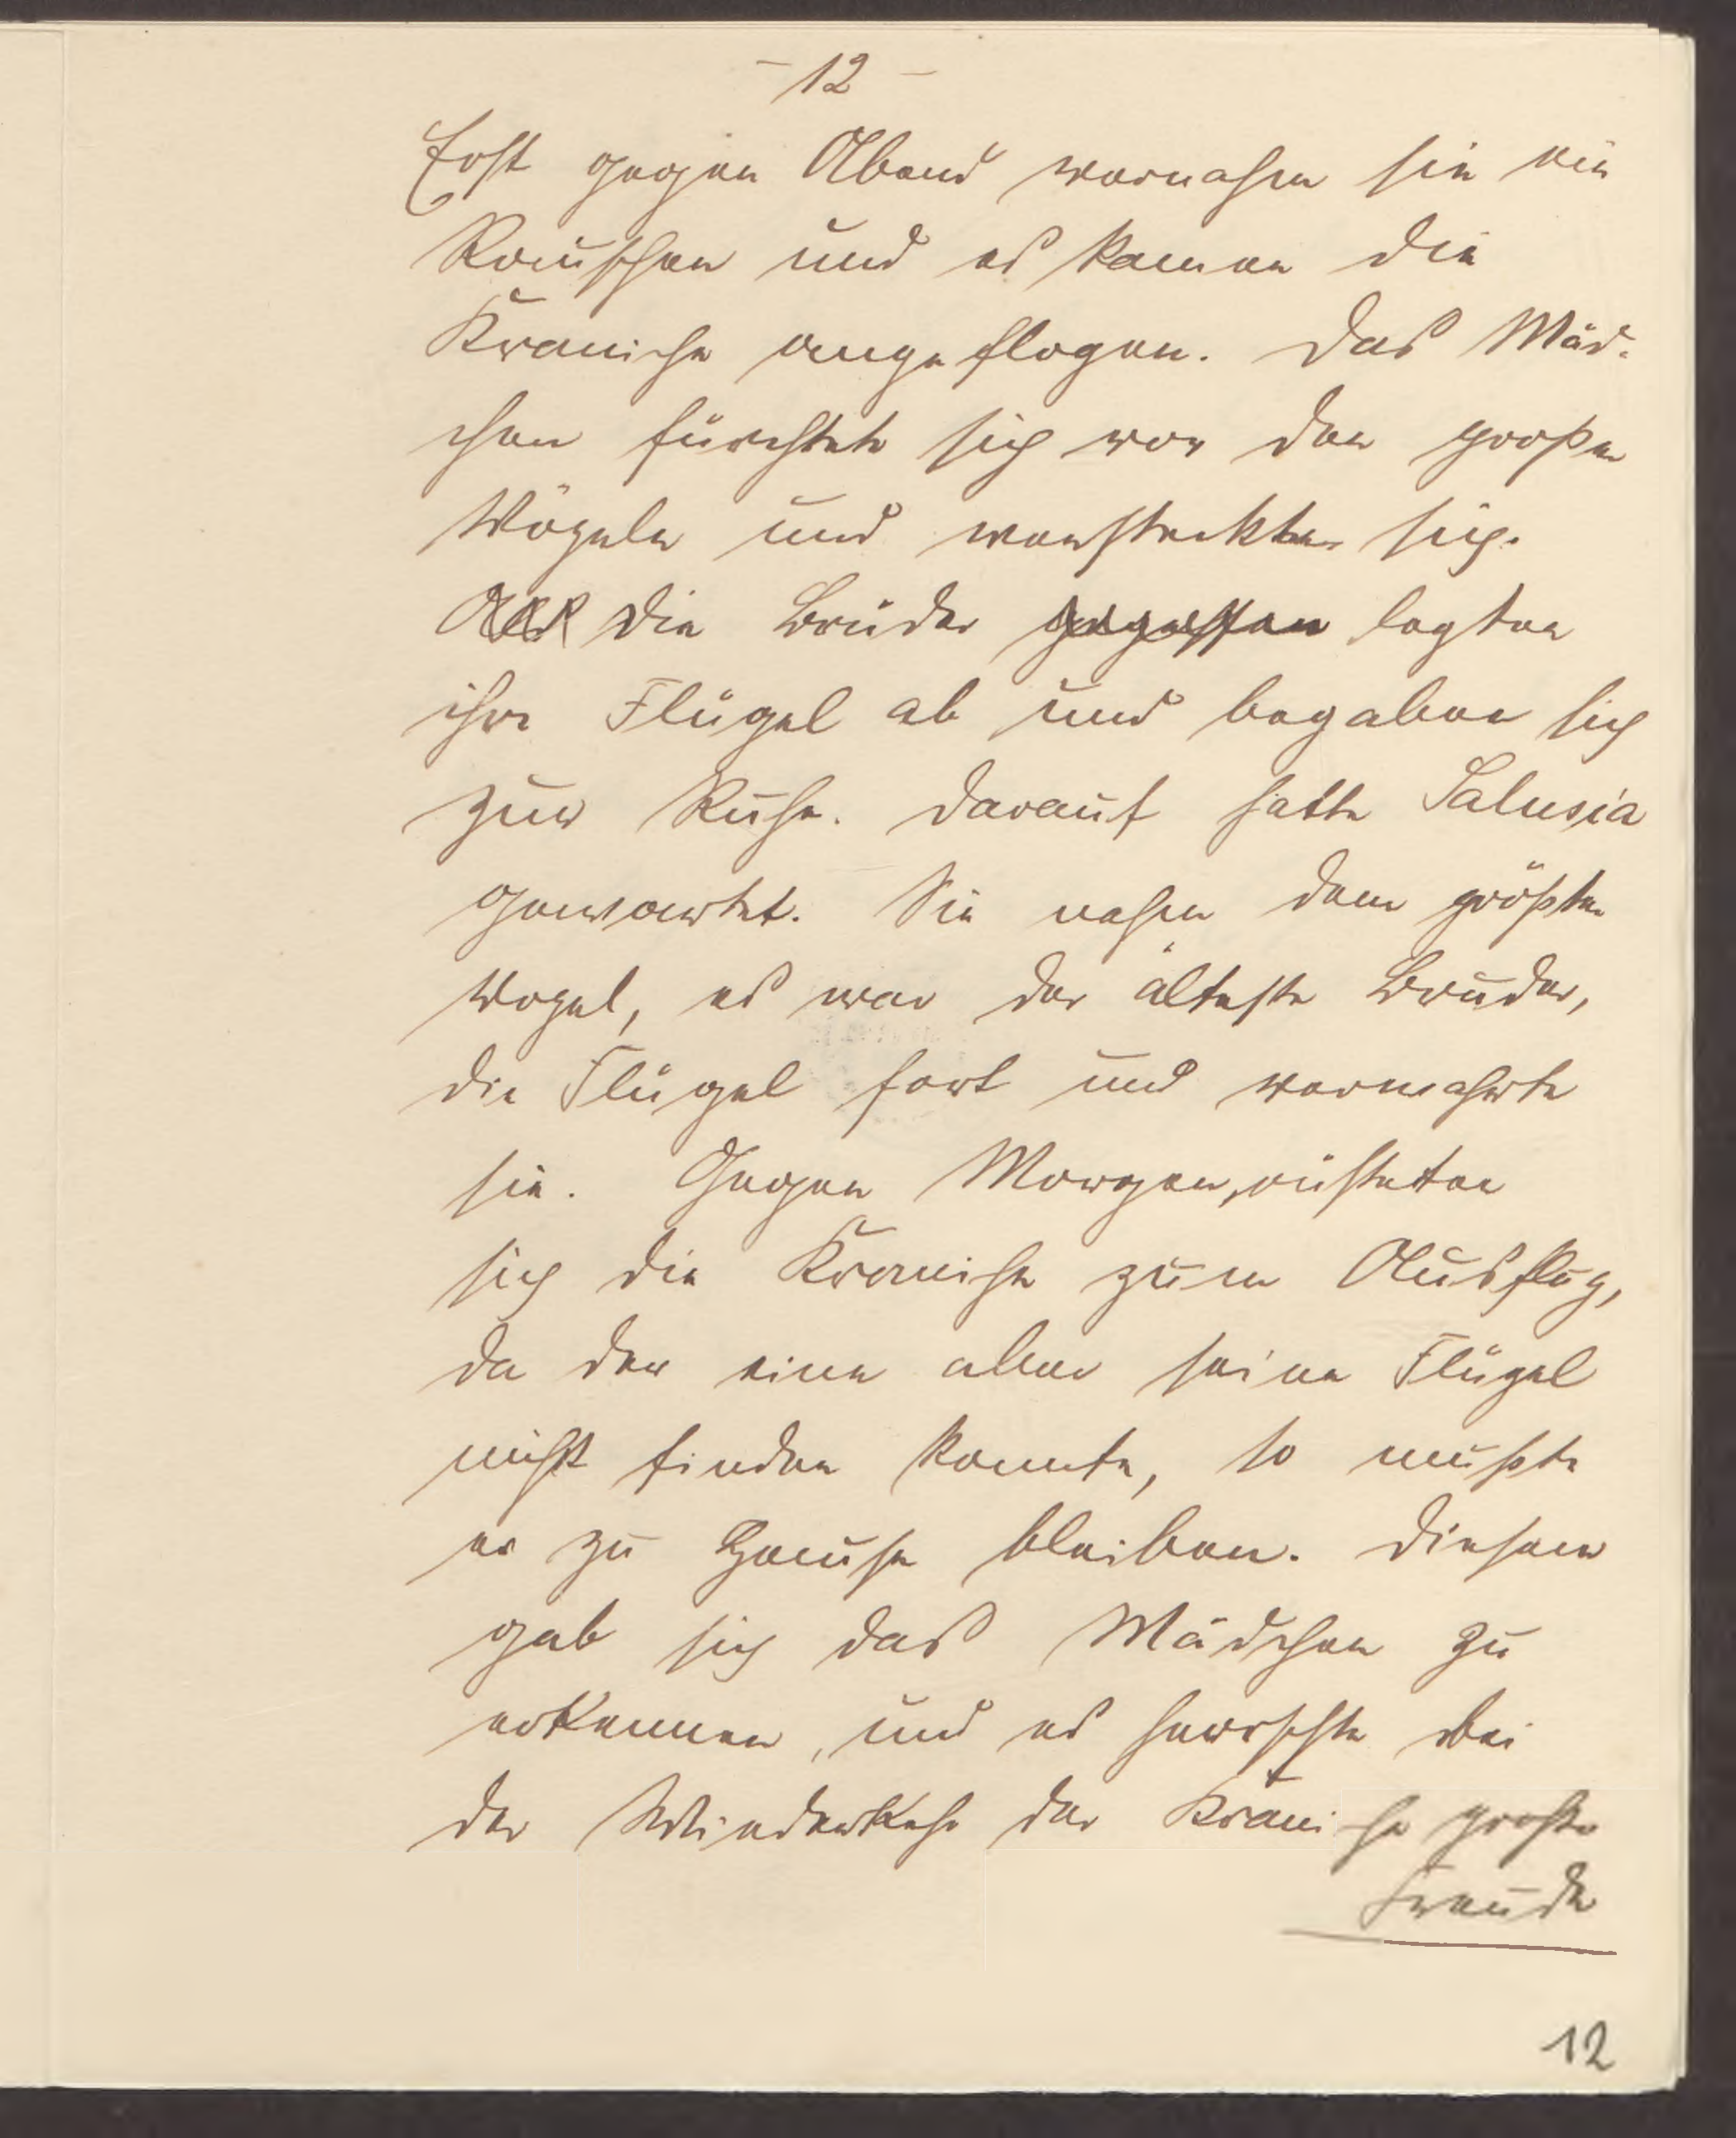 - 12 -
Erst gegen Abend vernahm sie ein
Rauschen und es kamen die
Kraniche angeflogen. Das Mäd-
chen fürchtete sich vor den großen
Vögeln und versteckte sich.
Als die Brüder gegessen legten
ihre Flügel ab und begaben sich
zur Ruhe. Darauf hatte Salusia
gewartet. Sie nahm dem größten
Vogel, es war der älteste Bruder,
die Flügel fort und verwahrte
sie. Gegen Morgen, rüsteten
sich die Kraniche zum Ausflug,
da der eine aber seine Flügel
nicht finden konnte, so mußte
er zu Hause bleiben. Diesem
gab sich das Mädchen zu
erkennen, und es herrschte bei
der Wiederkehr der Kraniche große
Freude
12